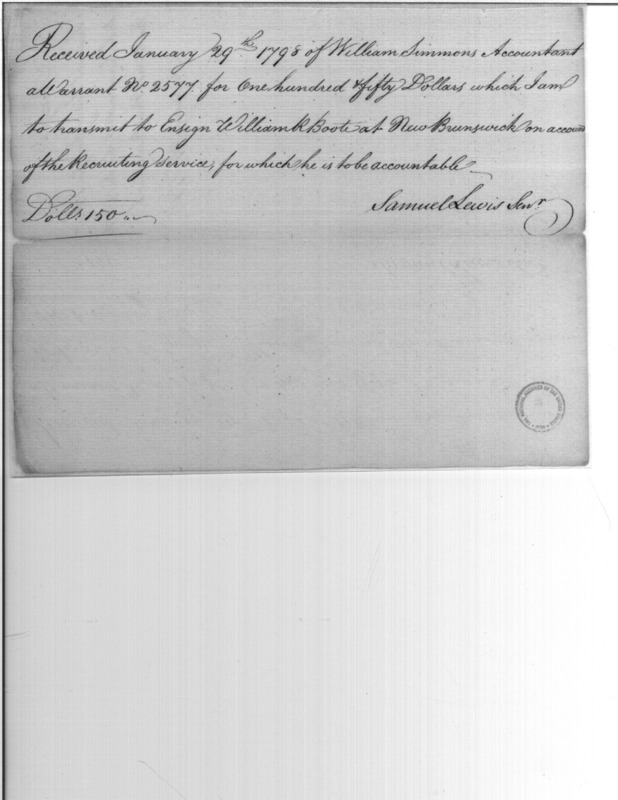 Received January 29th 1798 of William Simmons Accountant
a Warrant No. 2577 for One hundred & fifty Dollars which I am
to transmit to Ensign William R Boote at New Brunswick on account
of the Recruiting service, for which he is to be accountable
Dolls. 150
Samuel Lewis Senr.